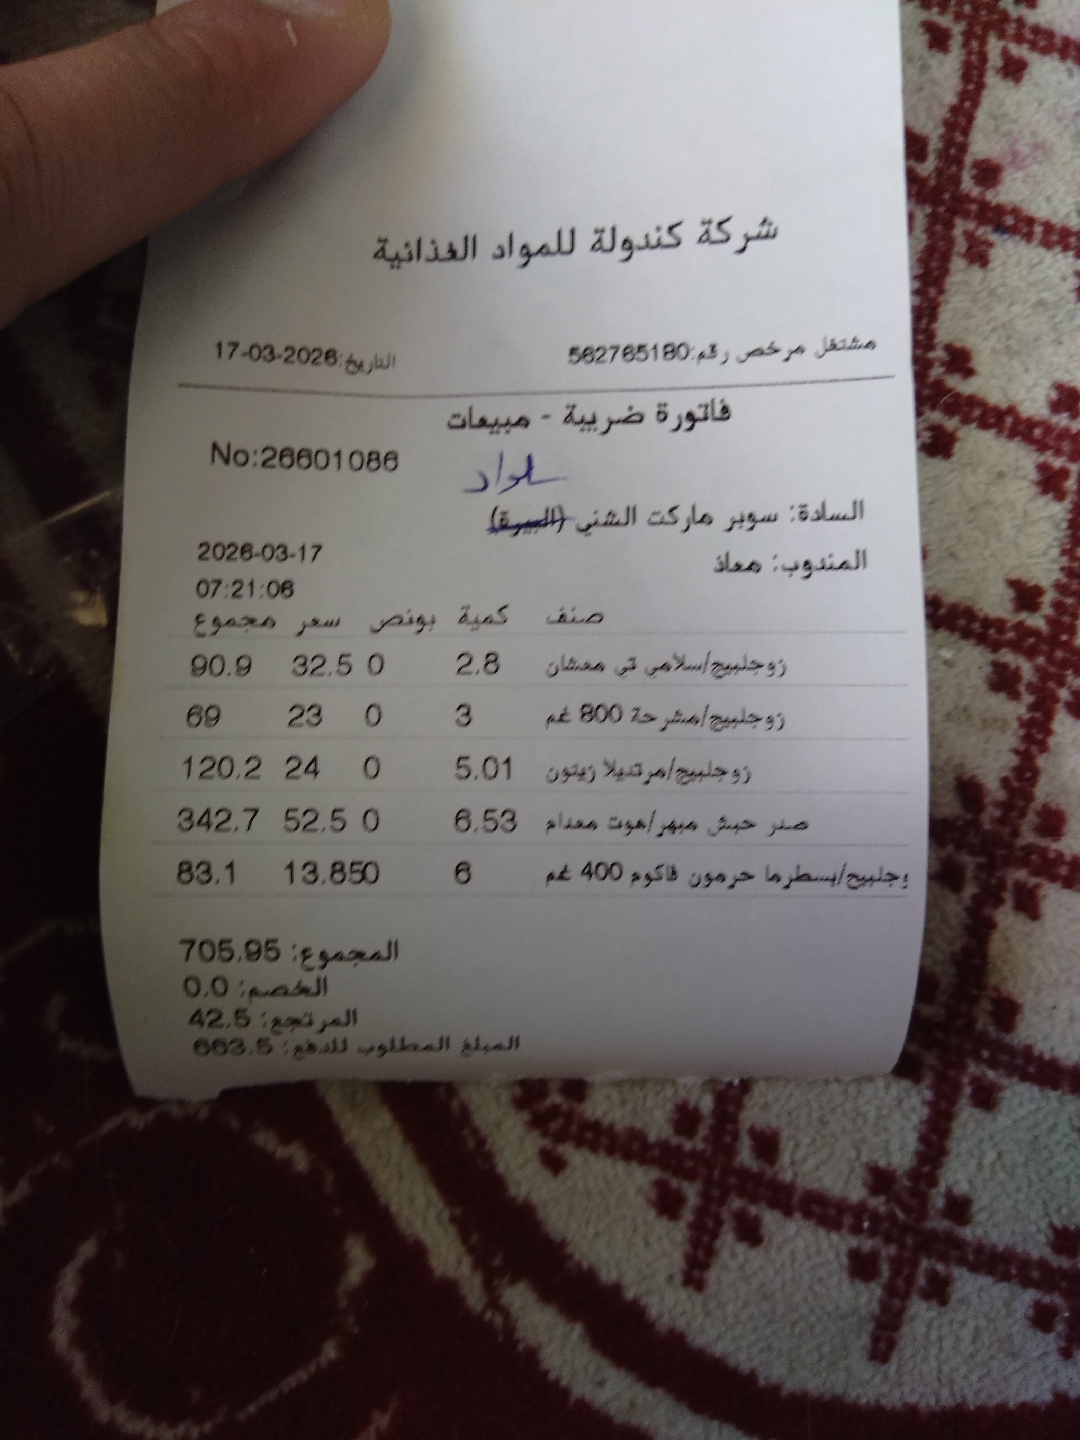 شركة كندولة للمواد الغذائية
مشتغل مرخص رقم:562765180 التاريخ:17-03-2026
فاتورة ضريبة - مبيعات
No:26601086
سلواد
السادة: سوبر ماركت الشني (البيرة)
المندوب: معاذ
2026-03-17
07:21:06
صنف كمية بونص سعر مجموع
زوجلبيج/سلامي تي معشان 2.8 0 32.5 90.9
زوجلبيج/مشرحة 800 غم 3 0 23 69
زوجلبيج/مرتديلا زيتون 5.01 0 24 120.2
صدر حبش مبهر/هوت معدام 6.53 0 52.5 342.7
وجلبيج/بسطرما حرمون فاكوم 400 غم 6 0 13.85 83.1
المجموع: 705.95
الخصم: 0.0
المرتجع: 42.5
المبلغ المطلوب للدفع: 663.5